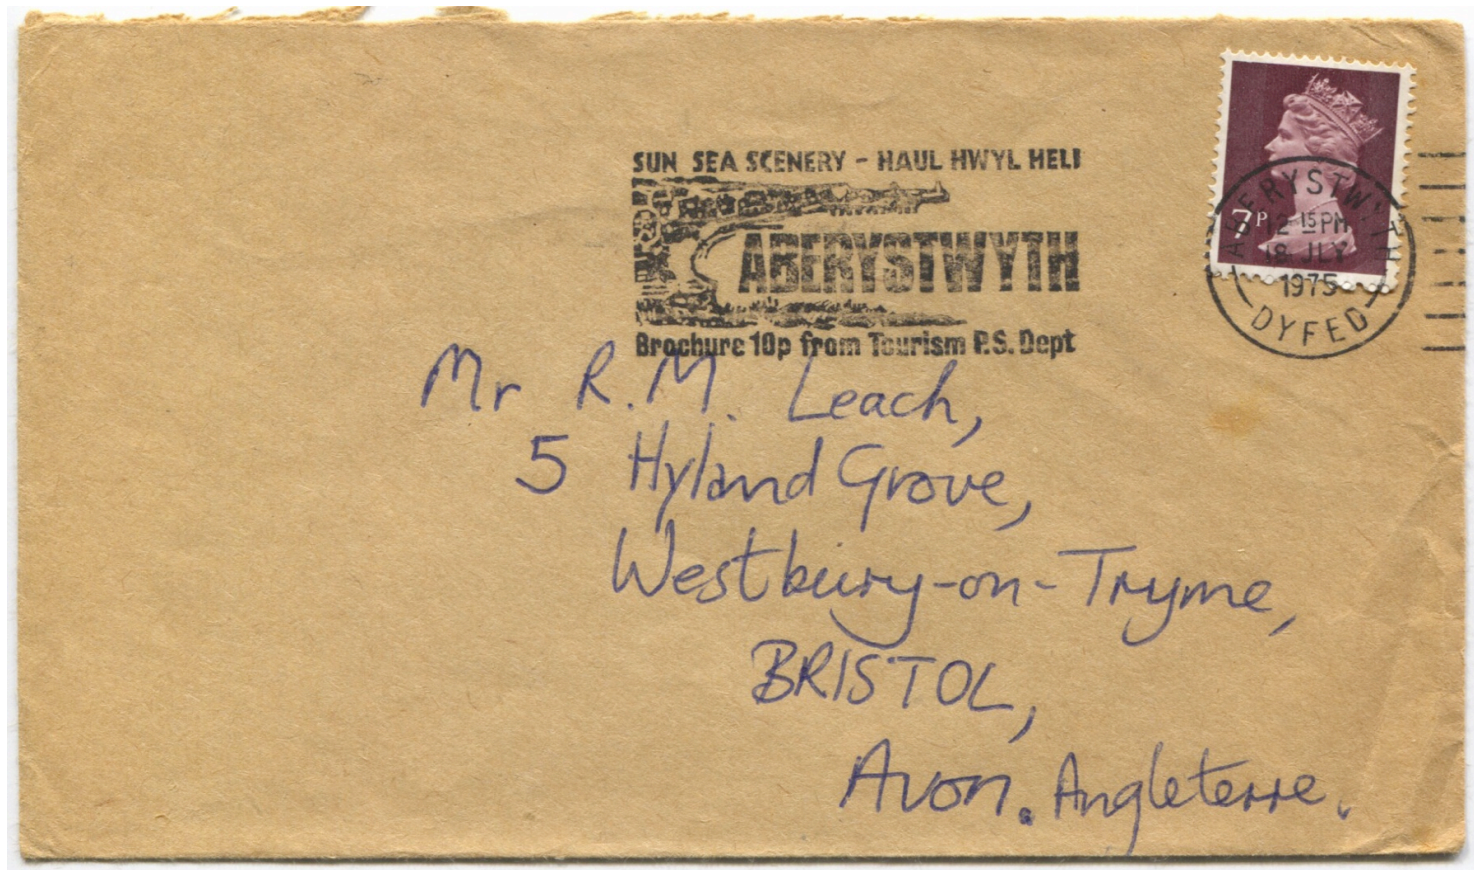 SUN SEA SCENERY - HAUL HWYL HELI
ABERYSTWYTH
Brochure 10p from Tourism P.S. Dept
7P
ABERYSTWYTH
12 15 PM
18 JLY
1975
DYFED
Mr R.M. Leach,
5 Hyland Grove,
Westbury-on-Tryme,
BRISTOL,
Avon. Angleterre.